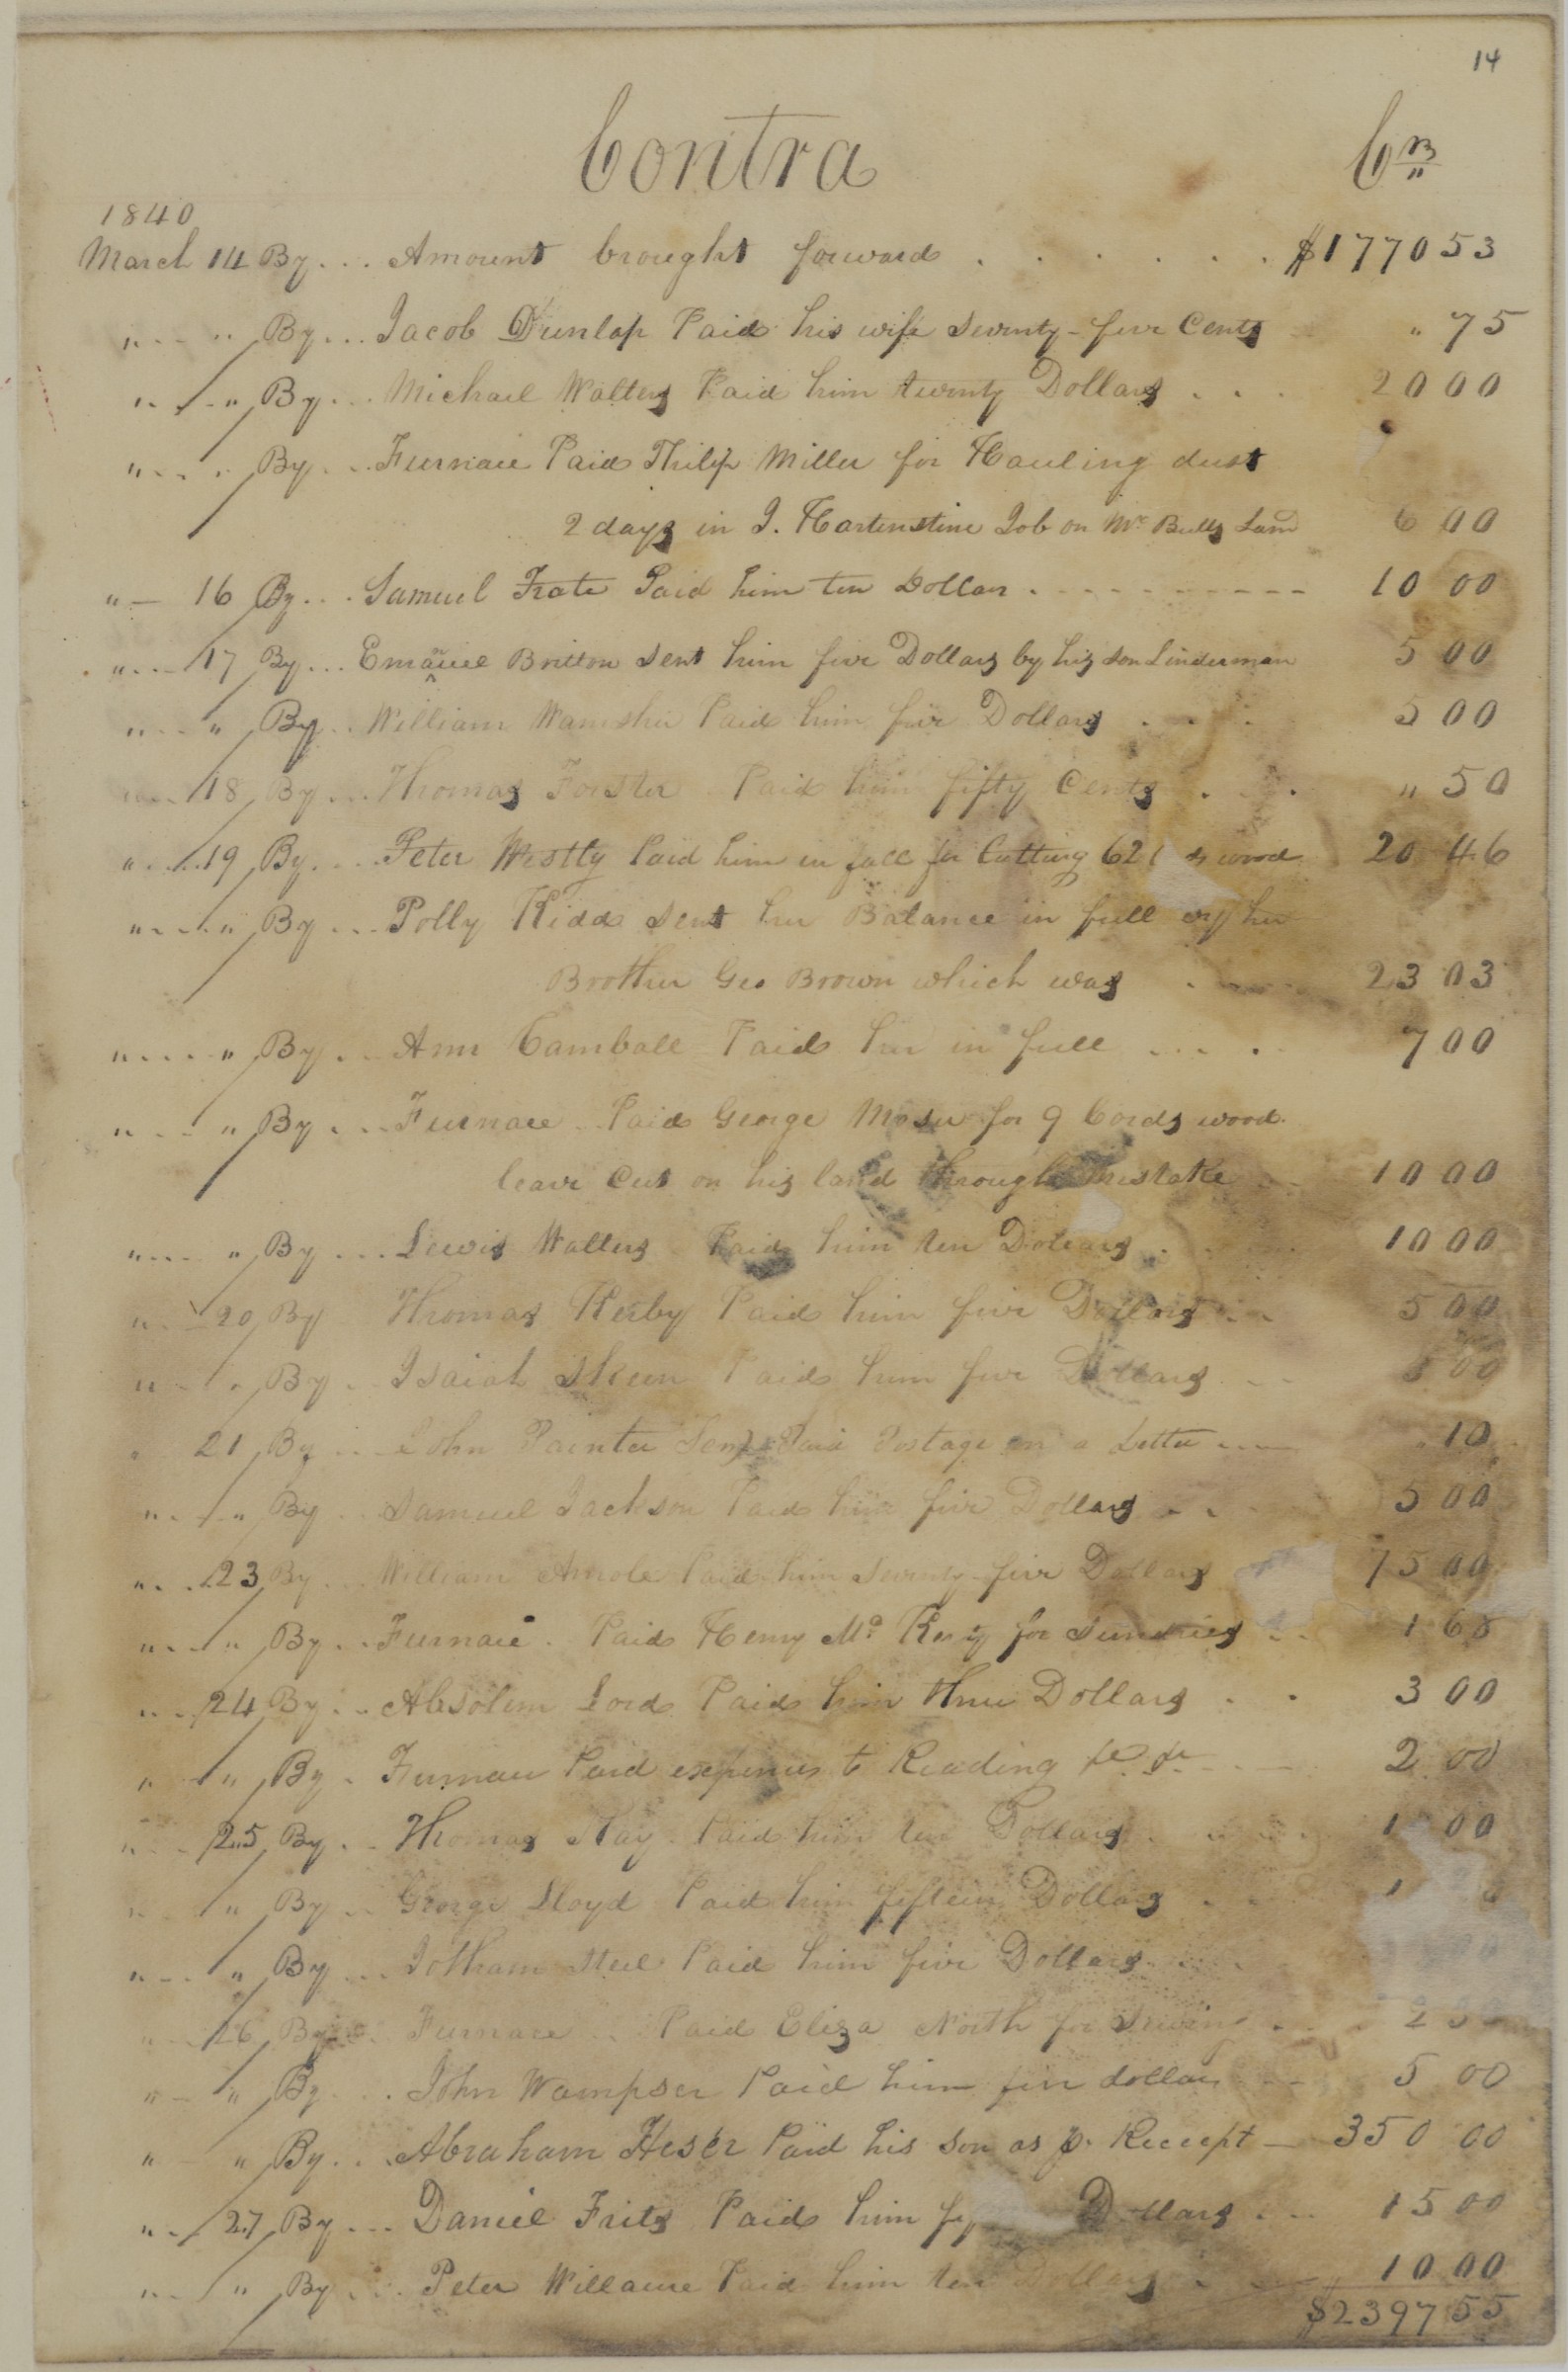 14
Contra Cr
1840
March 14 By... Amount brought forward . . . . . . $1770 53
" " By... Jacob Dunlap Paid his wife Seventy-five Cents " 75
" " By... Michael Walters Paid him twenty Dollars . . . 20 00
" " By... Furnace Paid Philip Miller for Hauling dust
2 days in J. Hartenstine Job on Mr Bulls Land 6 00
" 16 By... Samuel Paid him ten Dollars . - - - - 10 00
" 17 By... Emanuel Britton Sent him five Dollars by his son Linderman 5 00
" " By.. William Paid him five Dollars . . . 5 00
" 18 By... Thomas Forster Paid him fifty Cents . . . " 50
" 19 By... Peter Westly Paid him in full for Cutting 62 wood 20 46
" " By... Polly Kidd Sent her Balance in full by her
Brother Geo Brown which was . 23 03
" " By... Ann Camball Paid her in full ... . 7 00
" " By... Furnace Paid George Moser for 9 Cords wood
leave Cut on his land through mistake 10 00
" " By... Lewis Walters Paid him ten Dollars . . 10 00
" 20 By Thomas Kerby Paid him five Dollars . . 5 00
" " By . Isaiah Skeen Paid him five Dollars . . 5 00
" 21 By ... John Painter Senr Paid Postage on a Letter .... " 10
" " By .. Samuel Jackson Paid him five Dollars . . 5 00
" 23 By... William Amole Paid him Seventy-five Dollars 75 00
" " By... Furnace . Paid Henry Mc for Sundries . . 1 68
" 24 By... Absolem Lord Paid him three Dollars . . 3 00
" " By . Furnace Paid expenses to Reading 2 00
" 25 By .. Thomas Hay Paid him ten Dollars . . 1 00
" " By .. George Lloyd Paid him fifteen Dollars . . 1
" " By ... Jotham Steel Paid him five Dollars
" 26 By .. Furnace .. Paid Eliza North for Sewing . . 2 50
" " By ... John Wampser Paid him five dollars 5 00
" " By... Abraham Heser Paid his Son as pr Receipt 350 00
" 27 By ... Daniel Fritz Paid him Dollars . . . 15 00
" " By ... Peter Willaure Paid him ten Dollars . 10 00
$2397 55